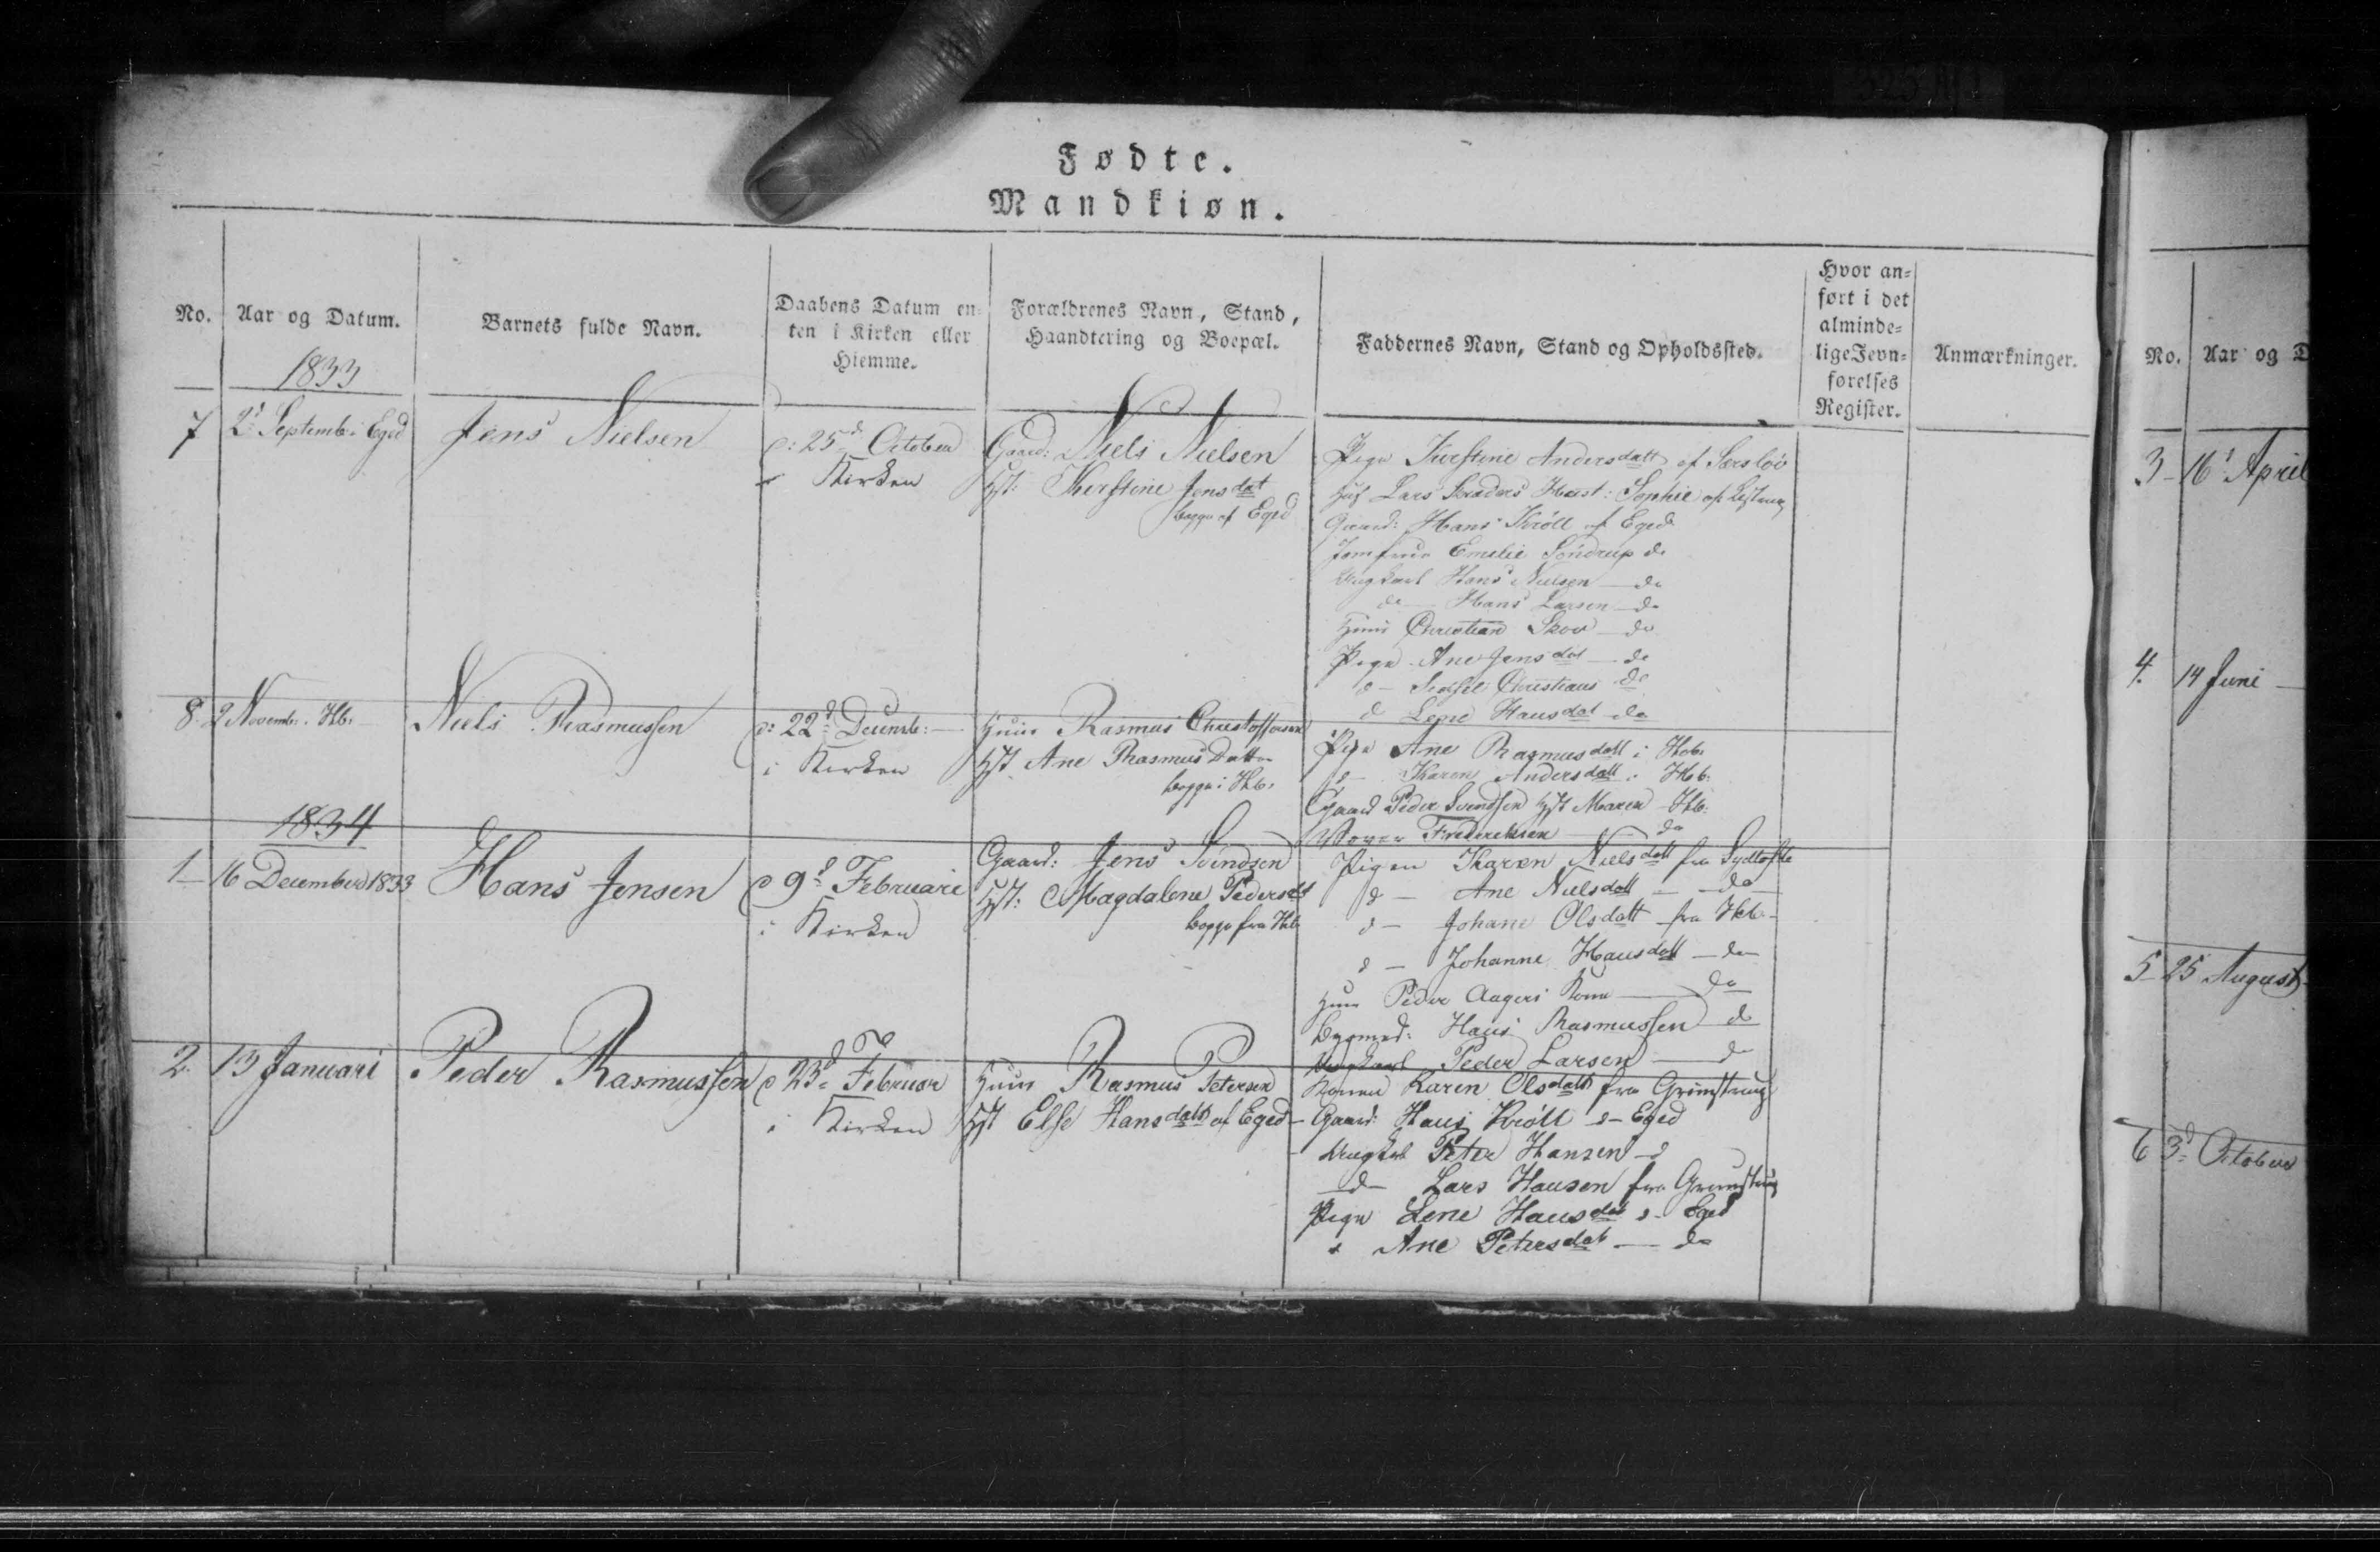 Fødte.
Mandkiøn.
No.
Aar og Datum.
Barnets fulde Navn.
Daabens Datum en=
ten i Kirken eller
Hiemme.
Forældrenes Navn, Stand,
Haandtering og Boepæl.
Faddernes Navn, Stand og Opholdssted.
Hvor an=
ført i det
alminde=
lige Jevn=
førelses
Register.
Anmærkninger.
1833
7
2d Septemb: Eged
Jens Nielsen
d: 25d October
i Kirken
Gaard: Niels Nielsen
Hst: Kirstine Jensdat
begge af Eged
Pige Kirstine Andersdatt af Særsløv
Lars Hust: Sophie af
Gaard: Hans Krøll af Eged
Jomfrue Emilie Söndrup do
Ungkarl Hans Nielsen do
do Hans Larsen do
Huus Christian Skov do
Pige Ane Jensdat do
d Sidsel Christians do
d Lene Hansdat do
8
2 Novemb: Hb:
Niels Rasmussen
d: 22d Decemb:
i Kirken
Huus Rasmus Christoffersen
Hst Ane Rasmus Datter
begge i Hb:
Pige Ane Rasmusdatt i Hb:
d Karen Andersdatt i Hb:
Gaard Peder Svendsen Hst Maren Hb:
Frederiksen do
1834
1
16 December 1833
Hans Jensen
d 9d Februari
i Kirken
Gaard: Jens Svindsen
Hst: Magdalene Pedersdt
begge fra Hb
Pigen Karen Nielsdatt fra Sydtofte
d Ane Nielsdatt do
d Johane Olsdatt fra Hb
d Johanne Hansdatt do
Huus Peder Aagers Kone do
Hans Rasmussen d
Ungkarl Peder Larsen d
2
13 Januari
Peder Rasmussen
d 23d Februar
i Kirken
Huus Rasmus Petersen
Hst Else Hansdatt af Eged
Konen Karen Olsdatt fra Grimstrup
Gaard: Hans Krøll d Eged
Ungkarl Peter Hansen d
d Lars Hansen fra Grimstrup
Pige Lene Hansdat d Eged
d Ane Petersdat do
No.
Aar og D
3
16d April
4
14 Juni
5
25 August
6
3d October